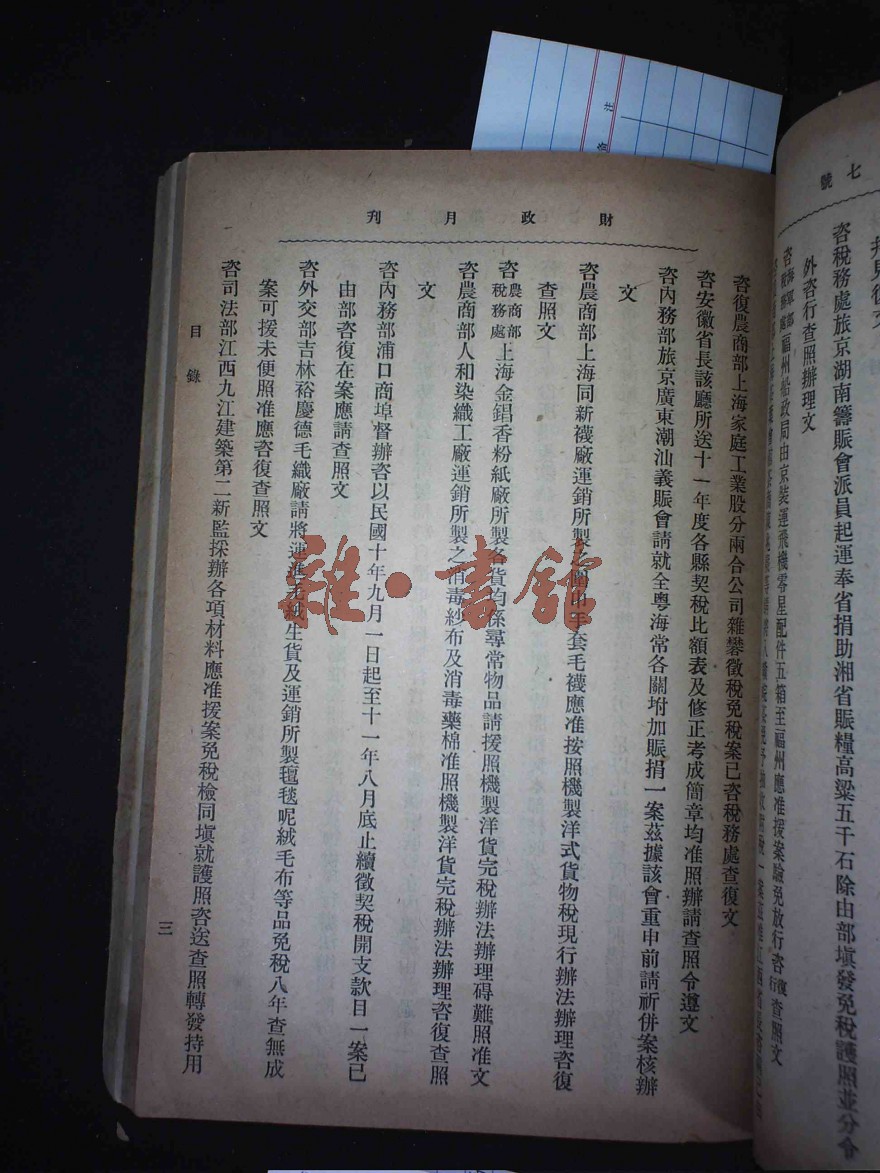 七號
咨稅務處旅京湖南籌賑會派員起運奉省捐助湘省賑糧高粱五千石除由部塡發免稅護照並分令
外咨行查照辦理文
福州船政局由京裝運飛機零星配件五箱至福州應准援案驗免放行咨復查照文
財政月刊
咨復農商部上海家庭工業股分兩合公司雜礬徵稅免稅案已咨稅務處查復文
咨安徽省長該廳所送十一年度各縣契稅比額表及修正考成簡章均准照辦請查照令遵文
咨內務部旅京廣東潮汕義賑會請就全粵海常各關附加賑捐一案茲據該會重申前請祈併案核辦
文
咨農商部上海同新襪廠運銷所製之手套毛襪應准按照機製洋式貨物稅現行辦法辦理咨復
查照文
咨農商部稅務處上海金錩香粉紙廠所製各貨均係尋常物品請援照機製洋貨完稅辦法辦理碍難照准文
咨農商部人和染織工廠運銷所製之消毒紗布及消毒藥棉准照機製洋貨完稅辦法辦理咨復查照
文
咨內務部浦口商埠督辦咨以民國十年九月一日起至十一年八月底止續徵契稅開支款目一案已
由部咨復在案應請查照文
咨外交部吉林裕慶德毛織廠請將運進毛絨生貨及運銷所製氈毯呢絨毛布等品免稅八年查無成
案可援未便照准應咨復查照文
咨司法部江西九江建築第二新監採辦各項材料應准援案免稅檢同塡就護照咨送查照轉發持用
目錄
三
雜·書館